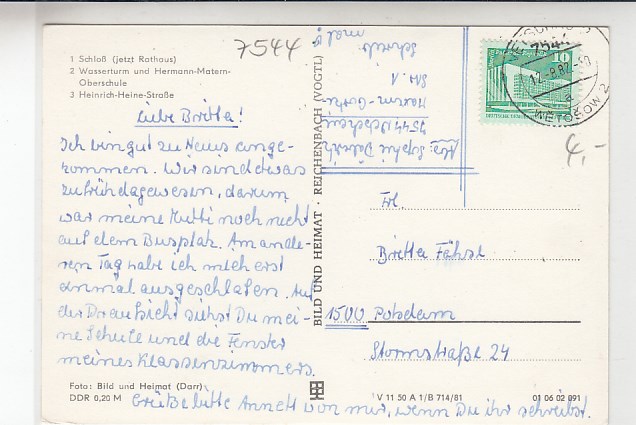 7544
1 Schloß (jetzt Rathaus)
2 Wasserturm und Hermann-Matern-
Oberschule
3 Heinrich-Heine-Straße
Liebe Britta!
Ich bin gut zu Haus ange-
kommen. Wir sind etwas
zu früh dagewesen, darum
war meine Mutti noch nicht
auf dem Busplatz. Am ande-
ren Tag habe ich mich erst
einmal ausgeschlafen. Auf
der Draufsicht siehst Du mei-
ne Schule und die Fenster
meines Klassenzimmers.
Grüße bitte Annett von mir, wenn Du ihr schreibst.
Foto: Bild und Heimat (Darr)
DDR 0,20 M
BILD UND HEIMAT · REICHENBACH (VOGTL)
V 11 50 A 1/B 714/81
01 06 02 091
Abs. Sophie
7544 Vetschau
Str. 1
Schreib
mal
10
7544
12.-8.82
VETSCHAU
WĚTOŠOW 2
4,-
Frl.
Britta Fähse
1500 Potsdam
Stormstraße 24